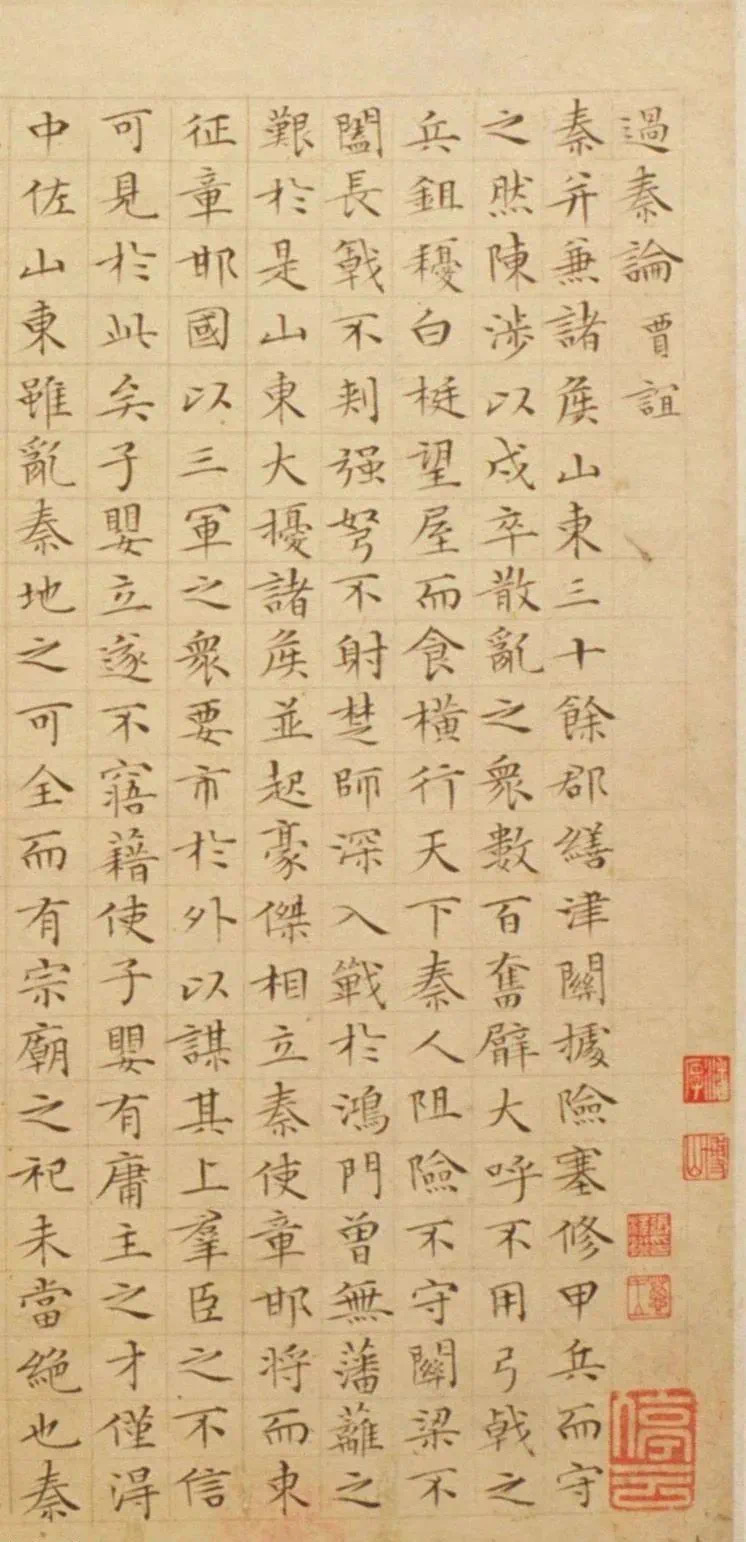 過秦論 賈誼
秦并兼諸侯山東三十餘郡繕津關據險塞修甲兵而守
之然陳涉以戍卒散亂之衆數百奮臂大呼不用弓戟之
兵鉏耰白梃望屋而食橫行天下秦人阻險不守關梁不
闔長戟不刺强弩不射楚師深入戰於鴻門曾無藩蘺之
艱於是山東大擾諸侯並起豪傑相立秦使章邯將而東
征章邯國以三軍之衆要市於外以謀其上羣臣之不信
可見於此矣子嬰立遂不寤藉使子嬰有庸主之才僅得
中佐山東雖亂秦地之可全而有宗廟之祀未當絶也秦
停云